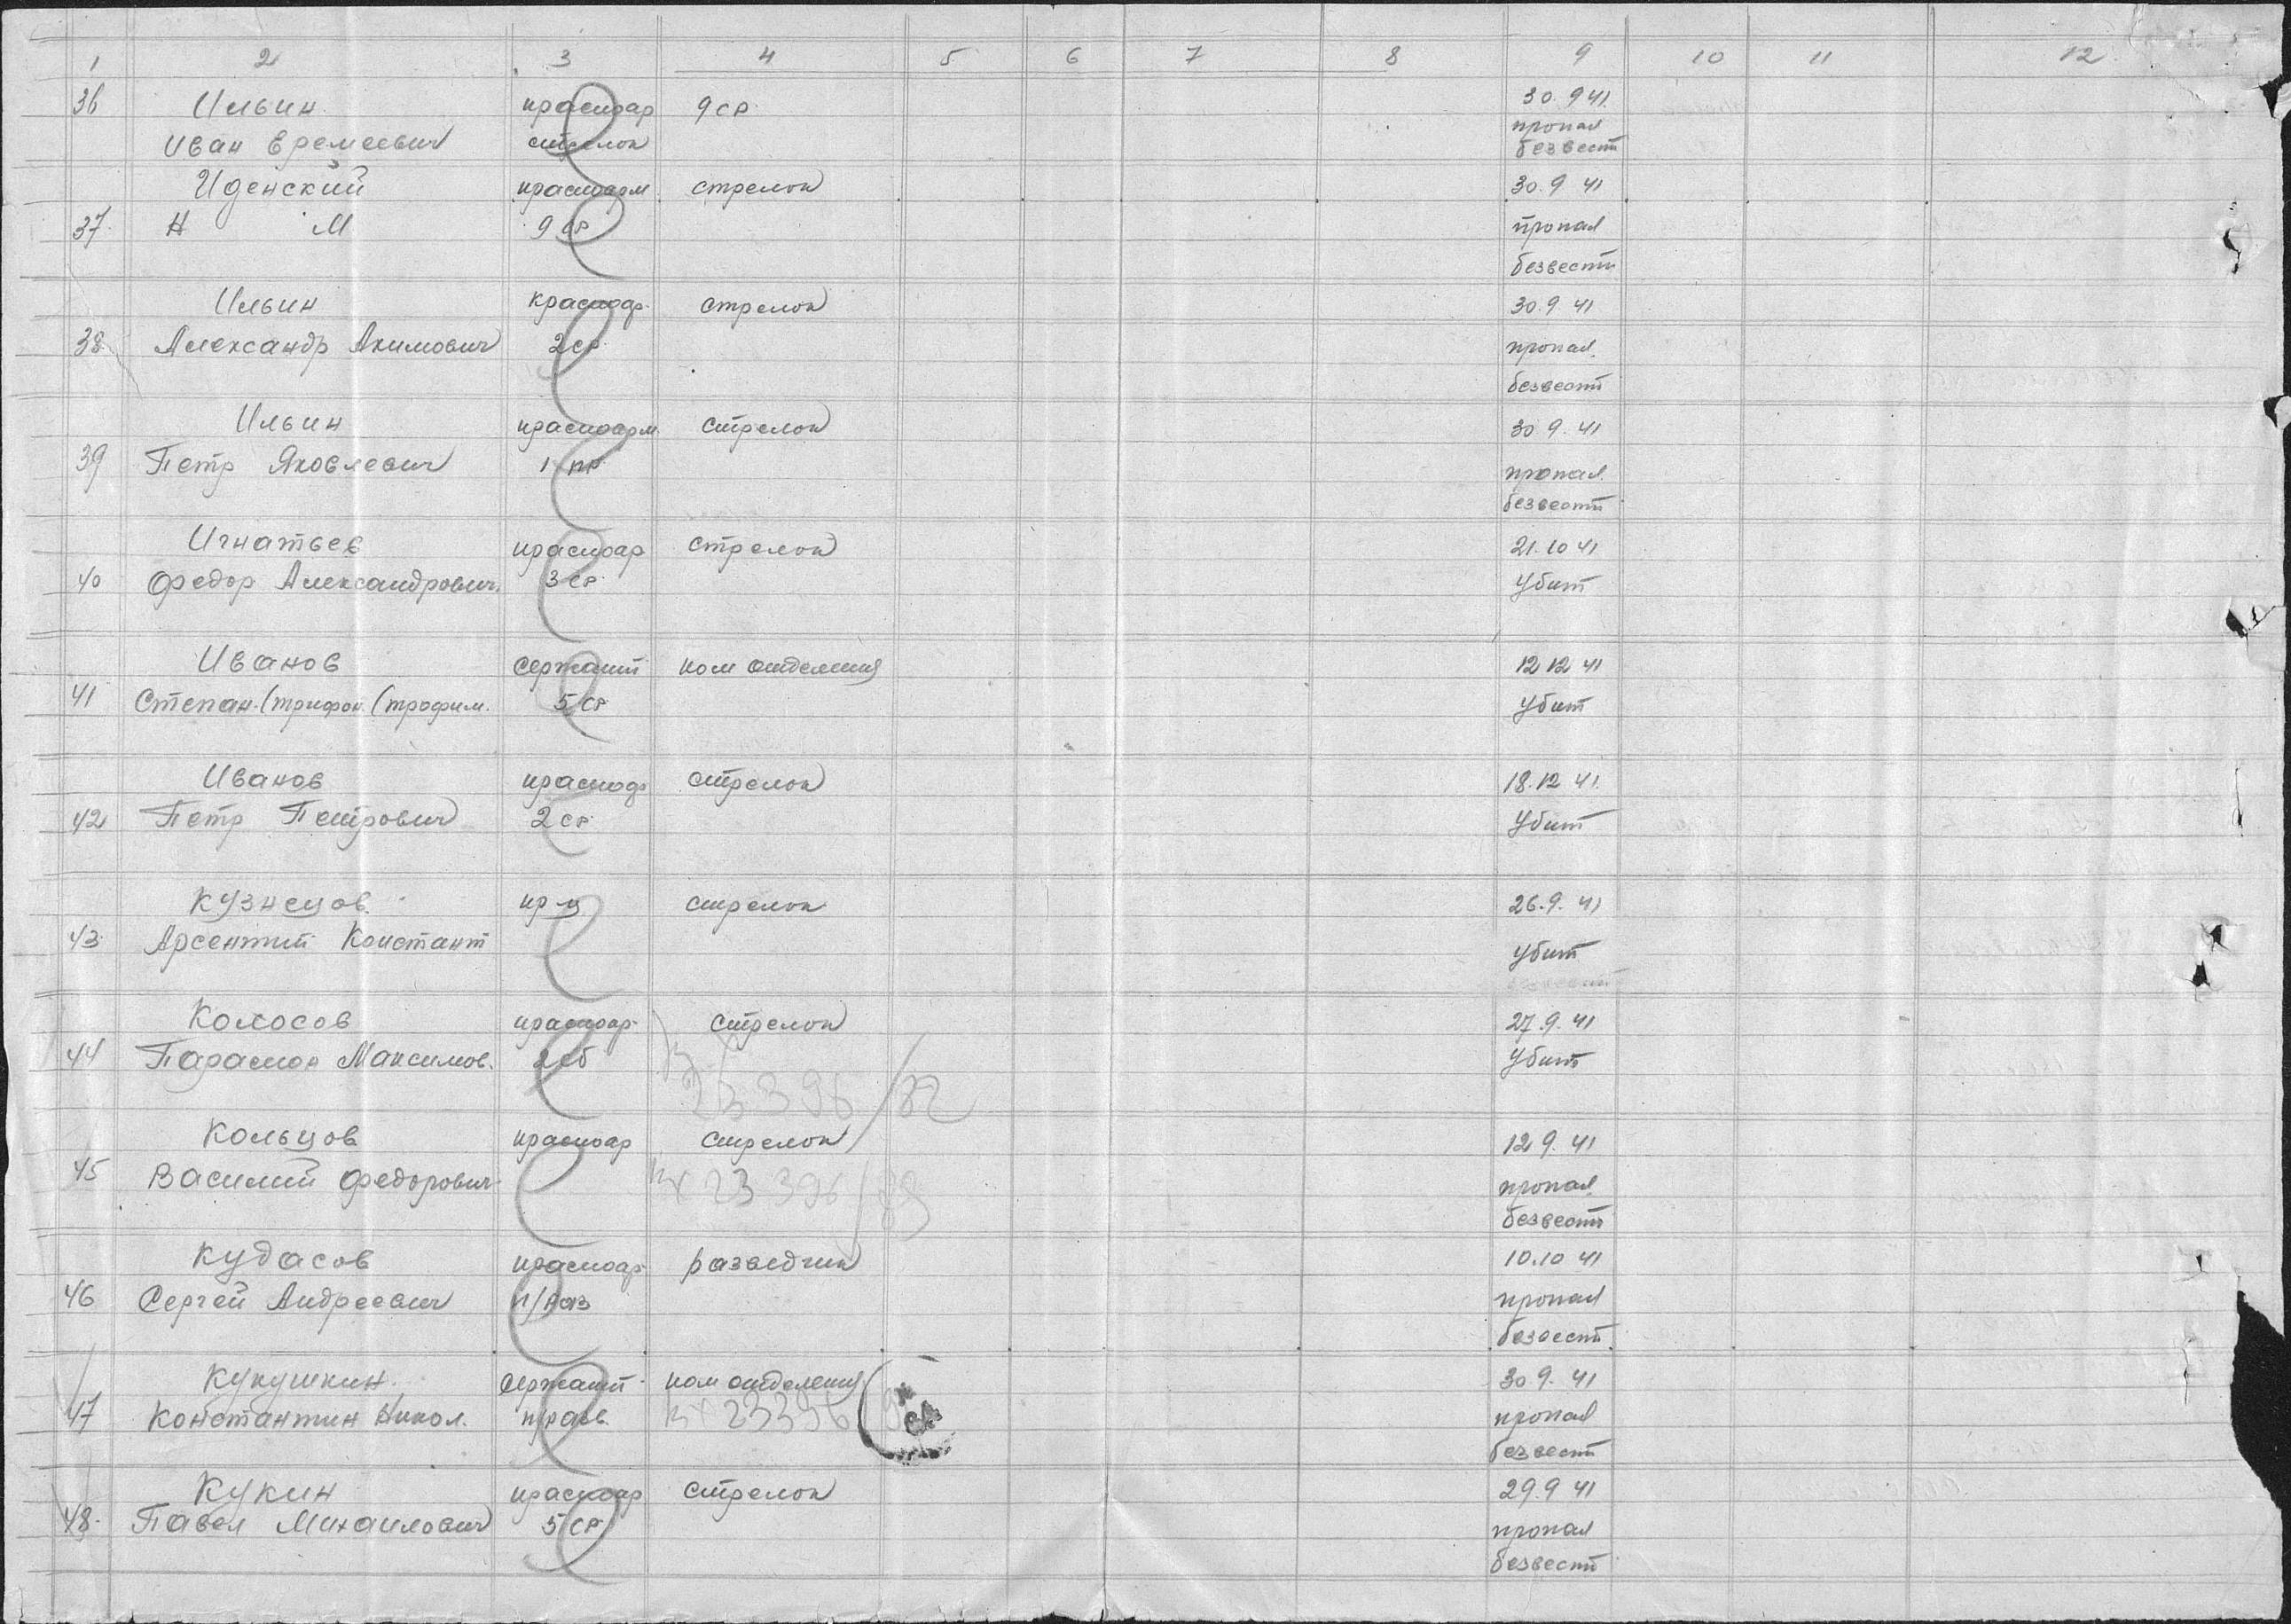 1 2 3 4 5 6 7 8 9 10 11 12
36 Ильин красноар 9 ср 30.9 41
пропал
Иван Еремеевич стрелок безвести
Иденский красноарм стрелок 30.9 41
37 Н М 9 ср пропал
безвести
Ильин красноар стрелок 30.9 41
38 Александр Акимович 2 ср пропал
безвести
Ильин красноарм стрелок 30 9. 41
39 Петр Яковлевич 1 пр пропал
безвести
Игнатьев красноар стрелок 21.10 41
40 Федор Александрович 3 ср Убит
Иванов сержант ком отделения 12 12 41
41 Степан (трифон (трофим. 5 ср Убит
Иванов красноар стрелок 18.12 41
42 Петр Петрович 2 ср Убит
Кузнецов кр-ц стрелок 26.9. 41
43 Арсентий Констант Убит
Колосов красноар стрелок 27.9. 41
44 Парамон Максимов. 2 сб Убит
23396/82
Кольцов красноар стрелок 12 9. 41
45 Василий Федорович вх 23396/83 пропал
безвести
Кудасов красноар разведчик 10.10 41
46 Сергей Андреевич п/раз пропал
безвест
Кукушкин сержант ком отделения 30 9. 41
47 Константин Никол. п/разв. вх 23396 пропал
безвести
Кукин красноар стрелок 29.9 41
48. Павел Михаилович 5 ср пропал
безвести